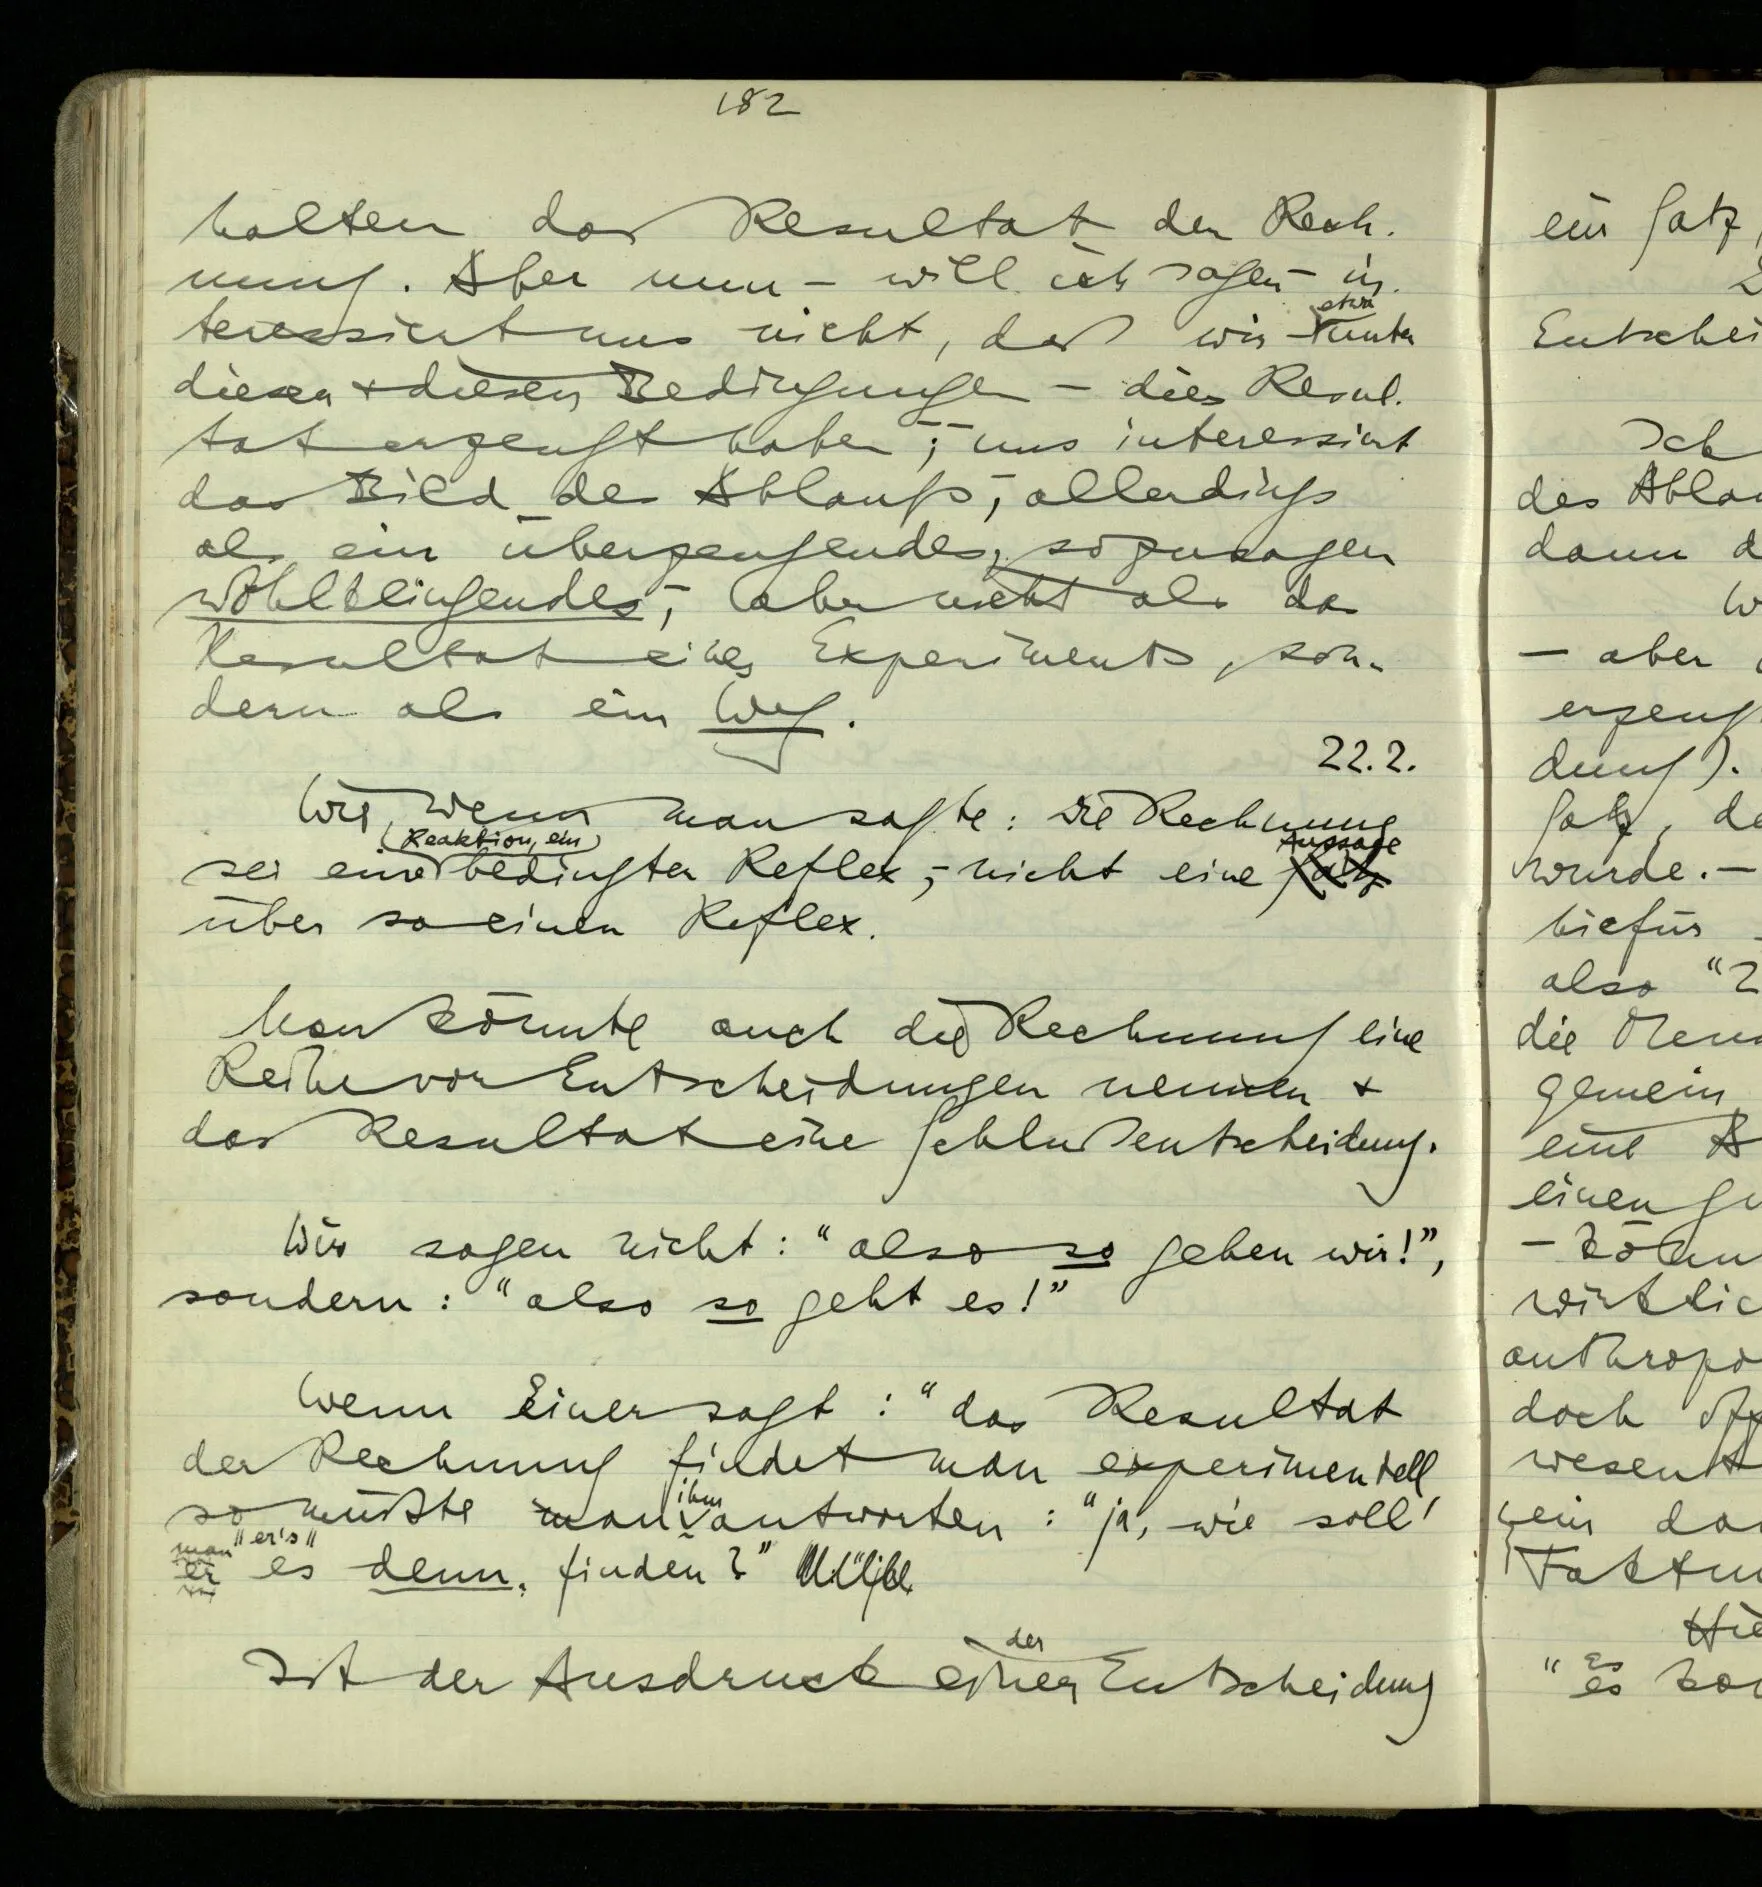 182
halten das Resultat der Rech-
nung. Aber nun – will ich sagen – in-
teressiert uns nicht, daß wir – etwa unter
diesen & diesen Bedingungen – dies Resul-
tat erzeugt haben; – uns interessiert
das Bild des Ablaufs, allerdings
als ein überzeugendes, sozusagen
wohlklingendes, – aber nicht als das
Resultat eines Experiments, son-
dern als ein Weg.
22.2.
Wie, wenn man sagte: die Rechnung
(Reaktion, ein) Aussage
sei eine bedingter Reflex, – nicht eine Satz
über so einen Reflex.
Man könnte auch die Rechnung eine
Reihe von Entscheidungen nennen &
das Resultat eine Schlußentscheidung.
Wir sagen nicht: "also so gehen wir!",
sondern: "also so geht es!"
Wenn Einer sagt: "das Resultat
der Rechnung findet man experimentell,
so müßte man ihm antworten: "ja, wie soll
man "er's"
er es denn finden?"
der
Ist der Ausdruck einer Entscheidung
ein Satz,
Entschei
Ich
des Ablau
dann d
– aber
erzeug
dung).
Satz, de
wurde. –
hiefür
also "
die
gemein
eine
einen
– 
wirklic
anthropo
doch
wesent
ein das
Faktu
Hie
es
"es